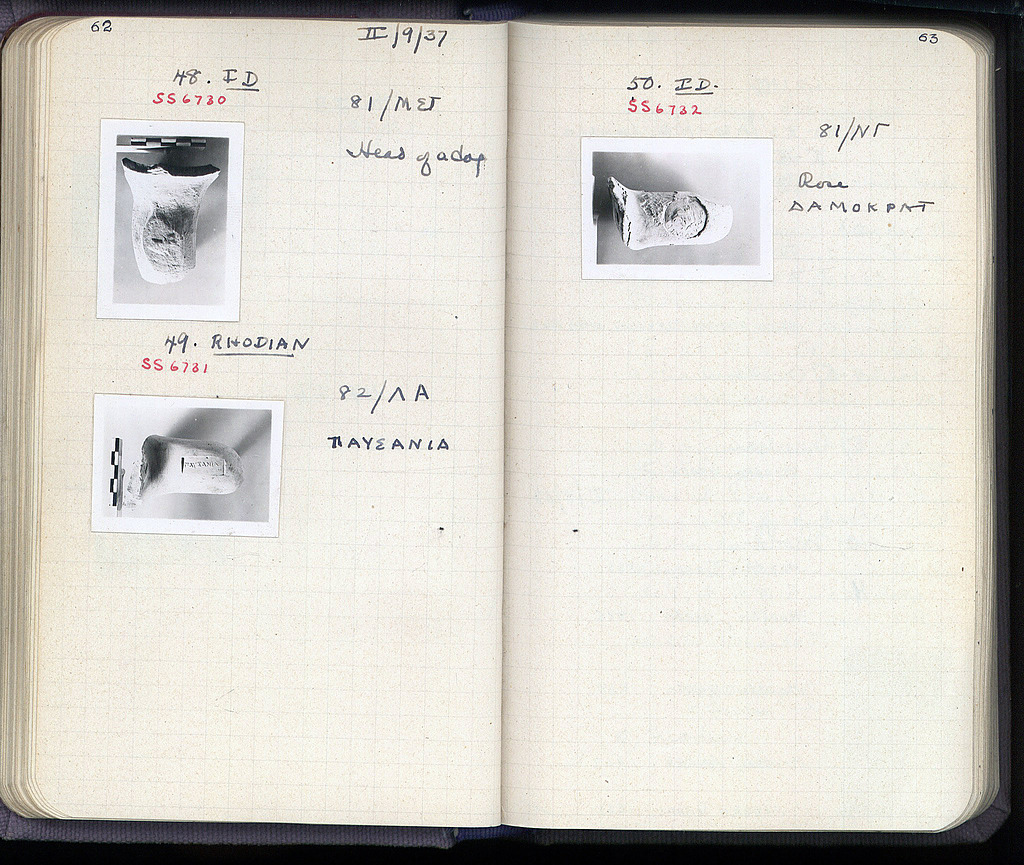 62
II/9/37
48. ID
SS6730
81/ΜΣΤ
Head of a dog
49. RHODIAN
SS6731
82/ΛΑ
ΠΑΥΣΑΝΙΑ
63
50. ID.
SS6732
81/ΝΓ
Rose
ΔΑΜΟΚΡΑΤ